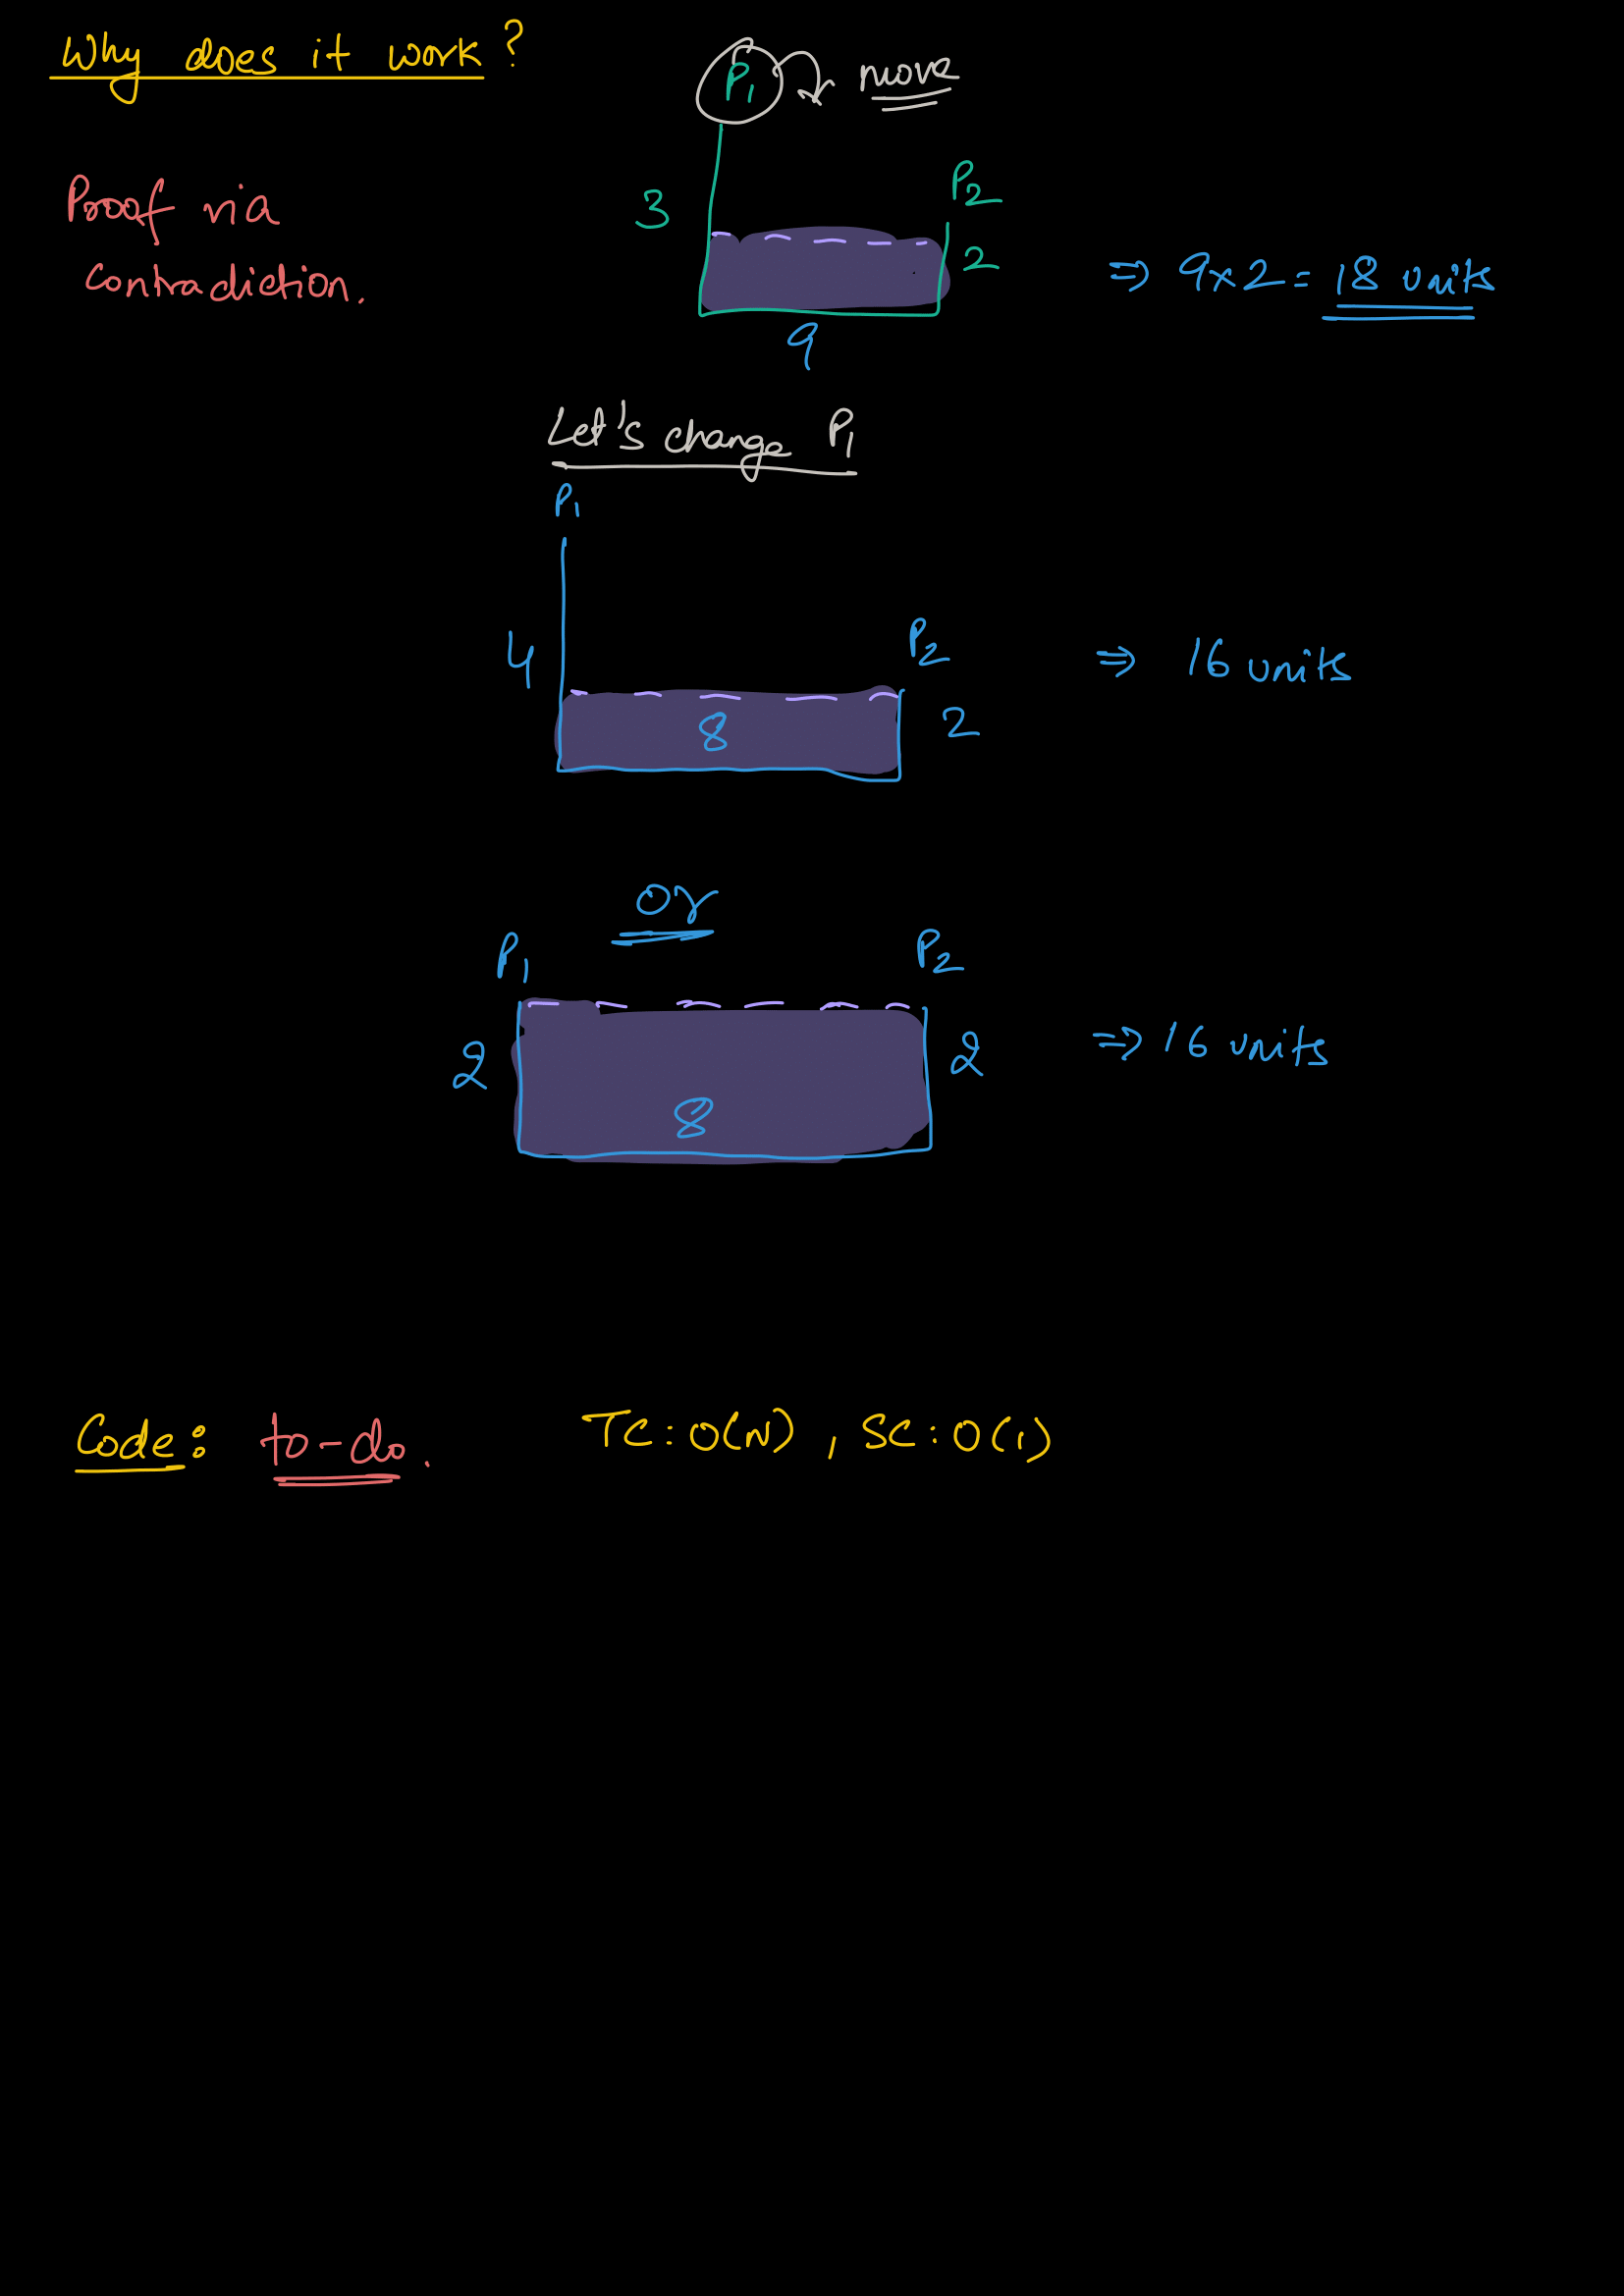 Why does it work?
P1 move
Proof via
contradiction.
3
P2
2
⇒ 9x2 = 18 units
9
Let's change P1
P1
4
P2
⇒ 16 units
8
2
or
P1
P2
2
2
⇒ 16 units
8
Code: to-do. TC: O(N), SC: O(1)